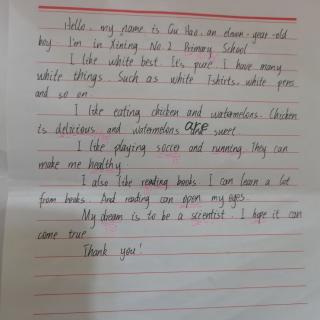 Hello, my name is Gu Hao, an eleven-year-old
boy. I'm in Xining No.2 Primary School
I like white best. It's pure. I have many
white things. Such as white T-shirts, white pens
and so on.
I like eating chicken and watermelons. Chicken
is delicious and watermelons are sweet.
I like playing soccer and running. They can
make me healthy.
I also like reading books. I can learn a lot
from books. And reading can open my eyes.
My dream is to be a scientist. I hope it can
come true.
Thank you!